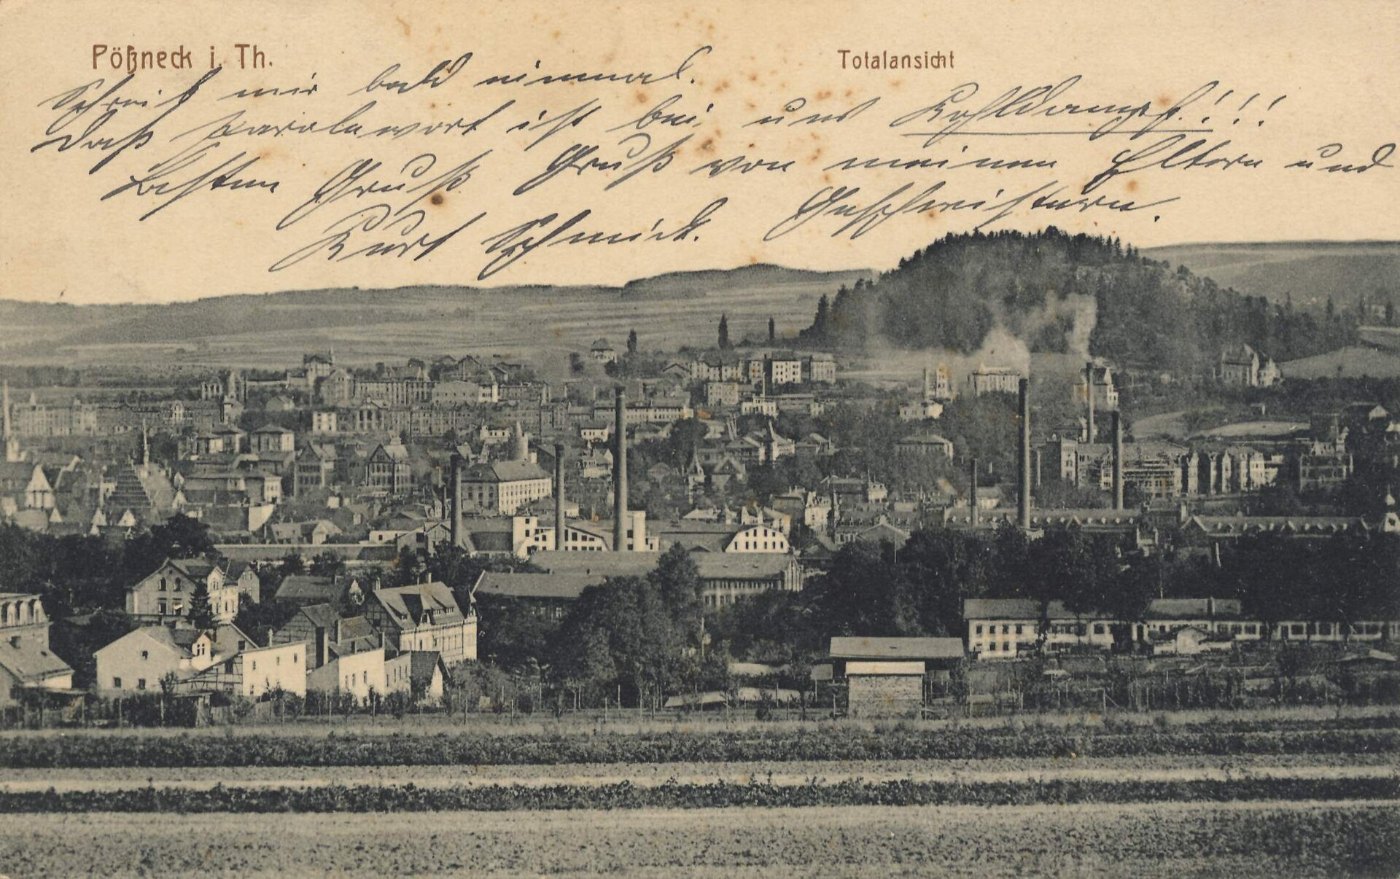 Pößneck i. Th.
Totalansicht
Schreib mir bald einmal.
Das Parolewort ist bei uns Kohldampf!!!
Besten Gruß Gruß von meinen Eltern und
Kurt Schmidt. Geschwistern.